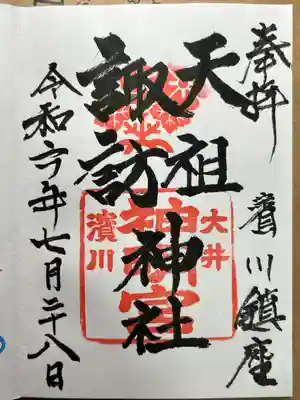 奉拝
濱川鎮座
天祖
諏訪神社
大井
神明宮
濱川
令和六年七月二十八日